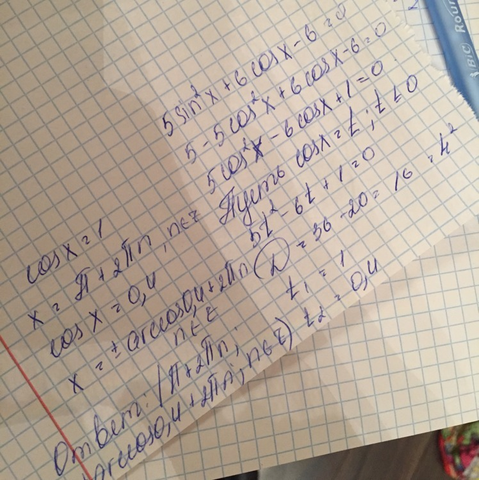 5 sin²x + 6 cosx - 6 = 0
5 - 5cos²x + 6cosx - 6 = 0
5cos²x - 6cosx + 1 = 0
Пусть cosx = 7; 7 70
57² - 67 + 1 = 0
D = 36 - 20 = 16 = 4²
7₁ = 1
72 = 0,4
cosx = 1
x = π + 2πn, n∈Z
cosx = 0,4
x = ± arccos0,4 + 2πn
n∈Z
Ответ: (π + 2πn;
arccos0,4 + 2πn; n∈Z)